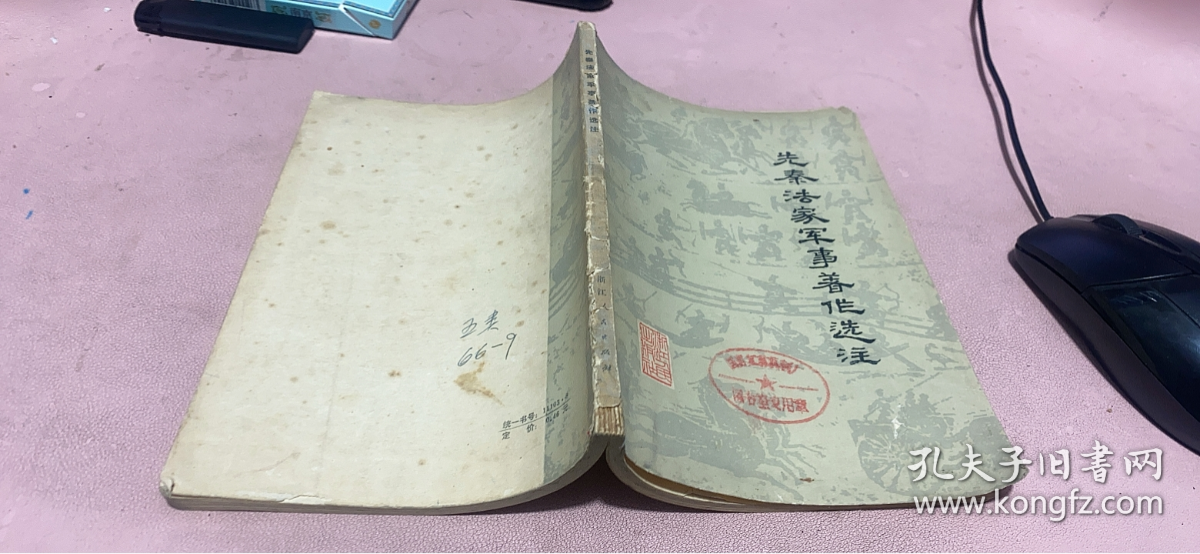 先秦法家军事著作选注
先秦法家军事著作选注
浙江人民出版社
五类
66-9
统一书号：
定价：
图书室专用章
孔夫子旧書网
www.kongfz.com